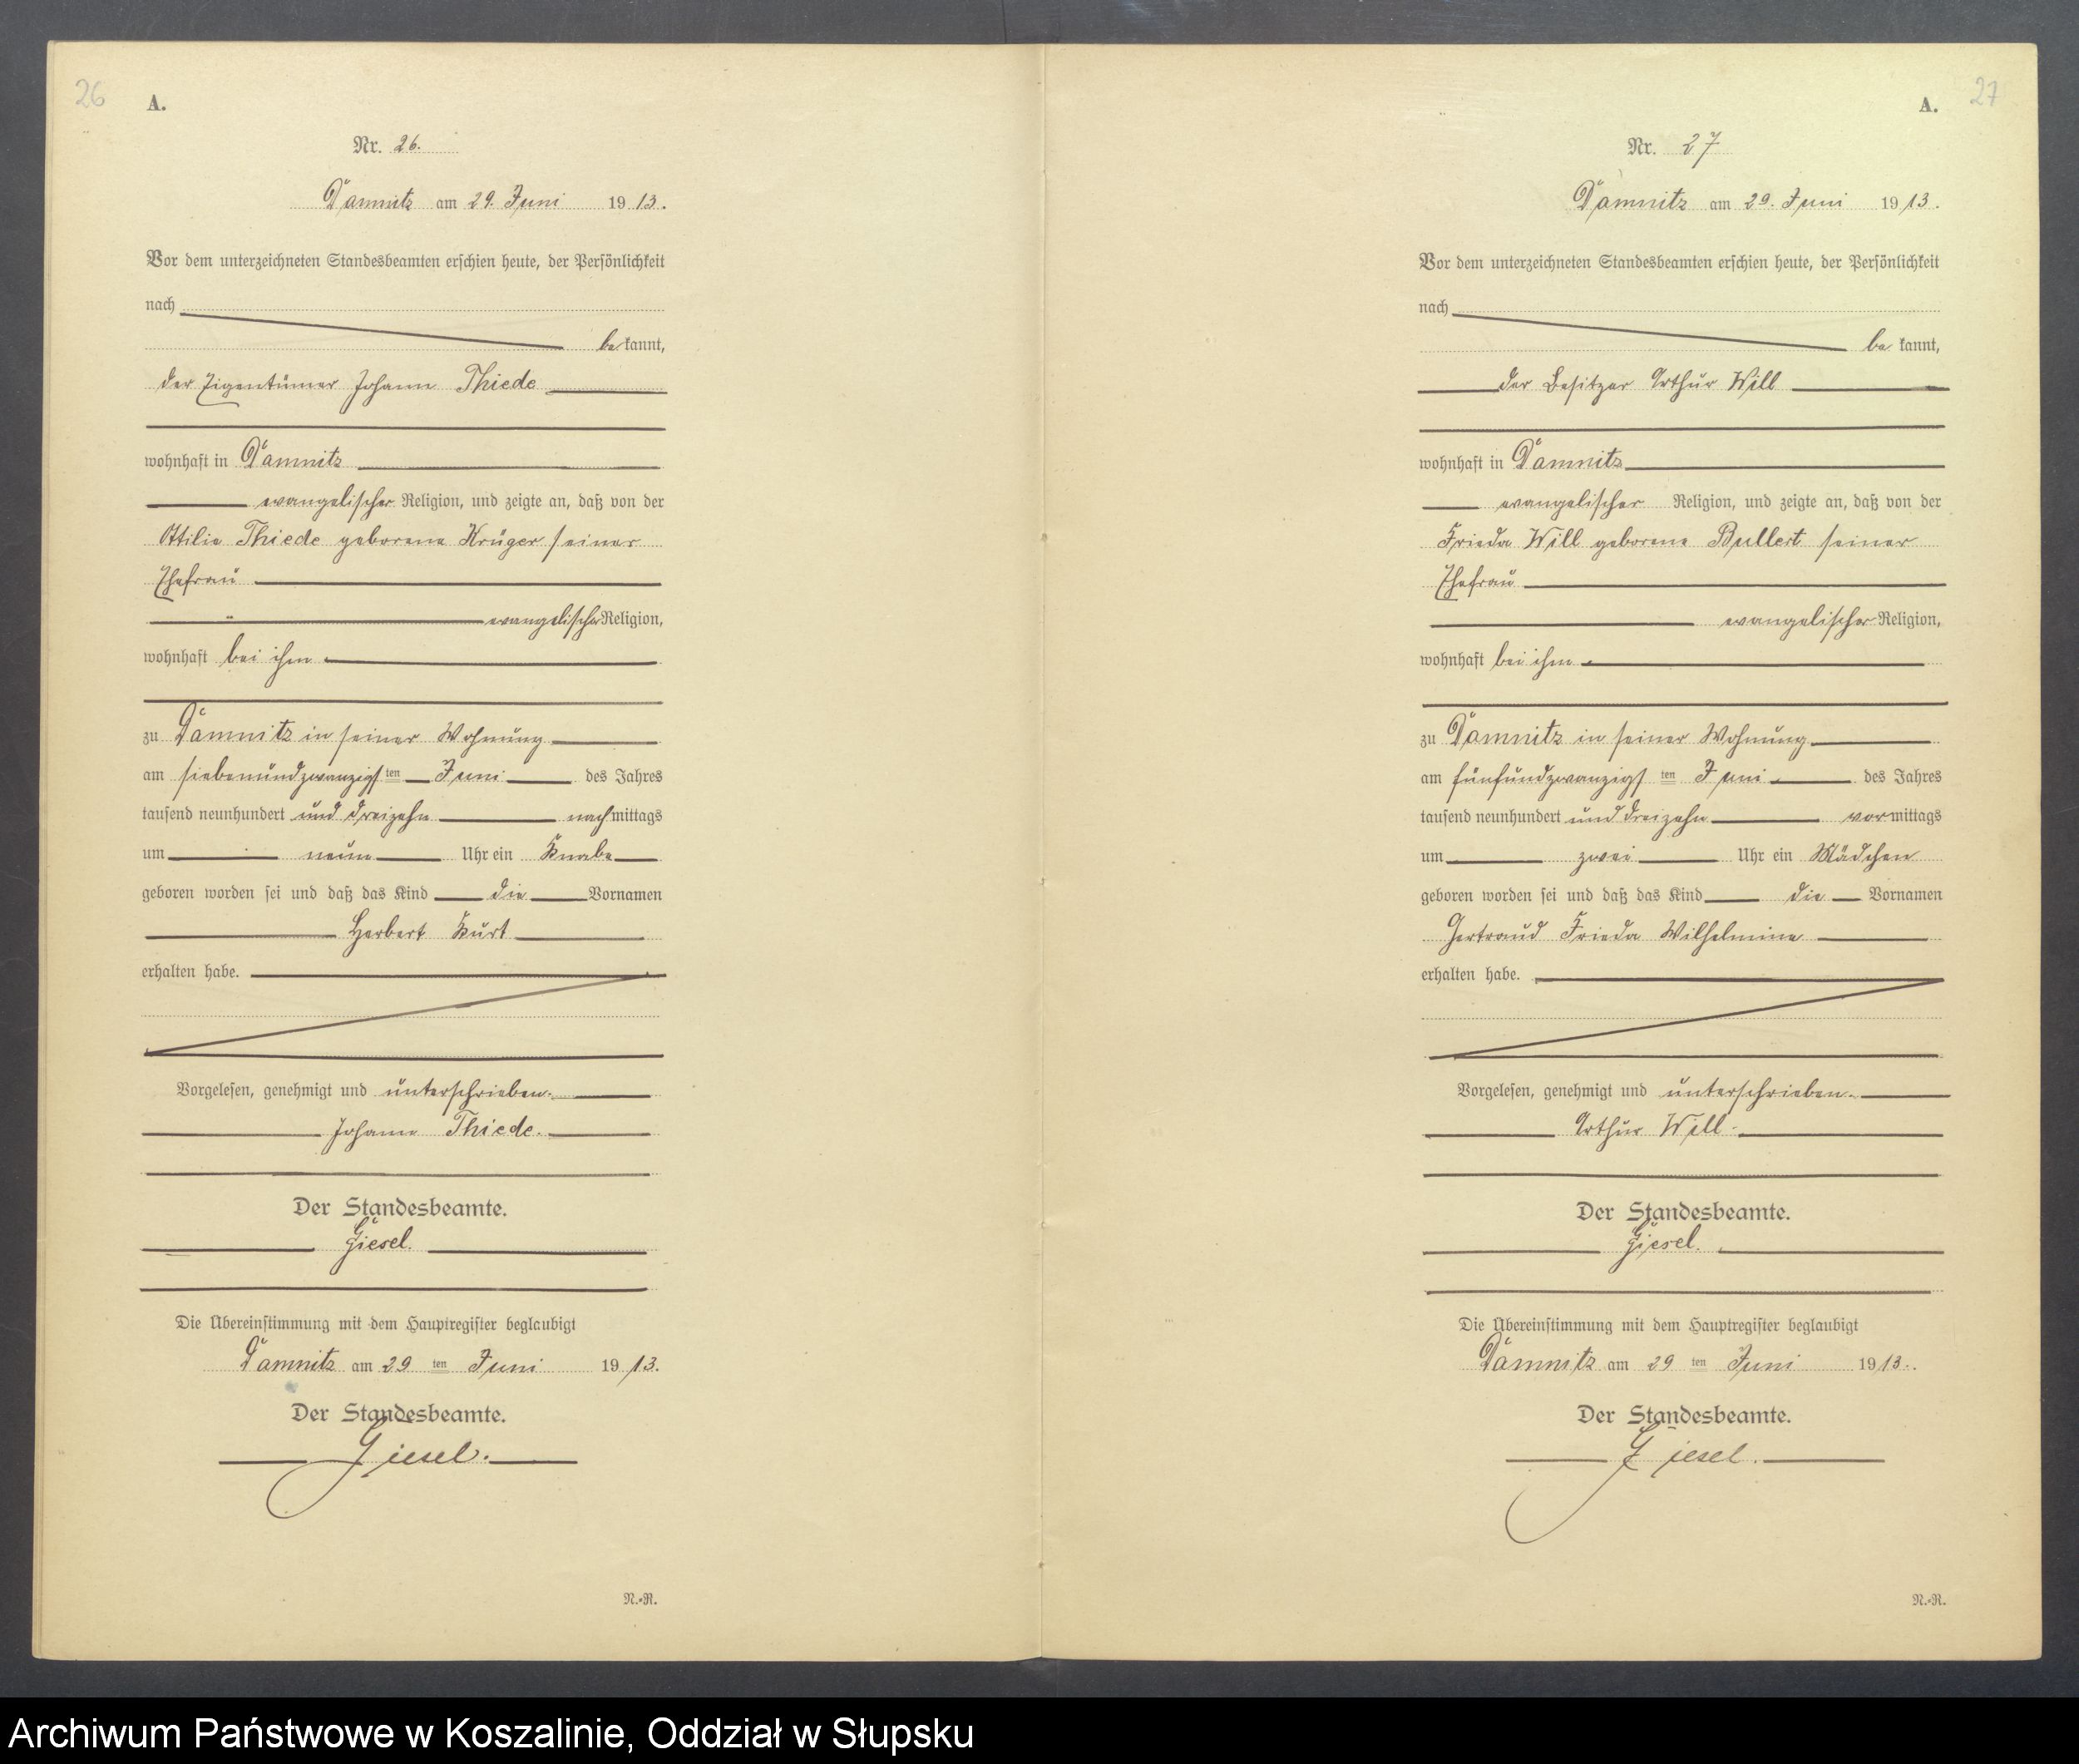 26
A.
Nr. 26.
Dämnitz am 29. Juni 1913.
Vor dem unterzeichneten Standesbeamten erschien heute, der Persönlichkeit
nach
bekannt,
der Eigentümer Johann Thiede
wohnhaft in Dämnitz
evangelischer Religion, und zeigte an, daß von der
Ottilie Thiede geborene Krüger seiner
Ehefrau
evangelischer Religion,
wohnhaft bei ihm
zu Dämnitz in seiner Wohnung
am siebenundzwanzigsten Juni des Jahres
tausend neunhundert und dreizehn nachmittags
um neun Uhr ein Knabe
geboren worden sei und daß das Kind die Vornamen
Herbert Kurt
erhalten habe.
Vorgelesen, genehmigt und unterschrieben.
Johann Thiede.
Der Standesbeamte.
Giesel.
Die Übereinstimmung mit dem Hauptregister beglaubigt
Dämnitz am 29 ten Juni 1913.
Der Standesbeamte.
Giesel.
N.-R.
27
A.
Nr. 27
Dämnitz am 29. Juni 1913.
Vor dem unterzeichneten Standesbeamten erschien heute, der Persönlichkeit
nach
bekannt,
der Besitzer Arthur Will
wohnhaft in Dämnitz
evangelischer Religion, und zeigte an, daß von der
Frieda Will geborene Bullert seiner
Ehefrau
evangelischer Religion,
wohnhaft bei ihm
zu Dämnitz in seiner Wohnung
am fünfundzwanzigsten Juni des Jahres
tausend neunhundert und dreizehn vormittags
um zwei Uhr ein Mädchen
geboren worden sei und daß das Kind die Vornamen
Gertraud Frieda Wilhelmine
erhalten habe.
Vorgelesen, genehmigt und unterschrieben.
Arthur Will.
Der Standesbeamte.
Giesel.
Die Übereinstimmung mit dem Hauptregister beglaubigt
Dämnitz am 29 ten Juni 1913.
Der Standesbeamte.
Giesel.
N.-R.
Archiwum Państwowe w Koszalinie, Oddział w Słupsku